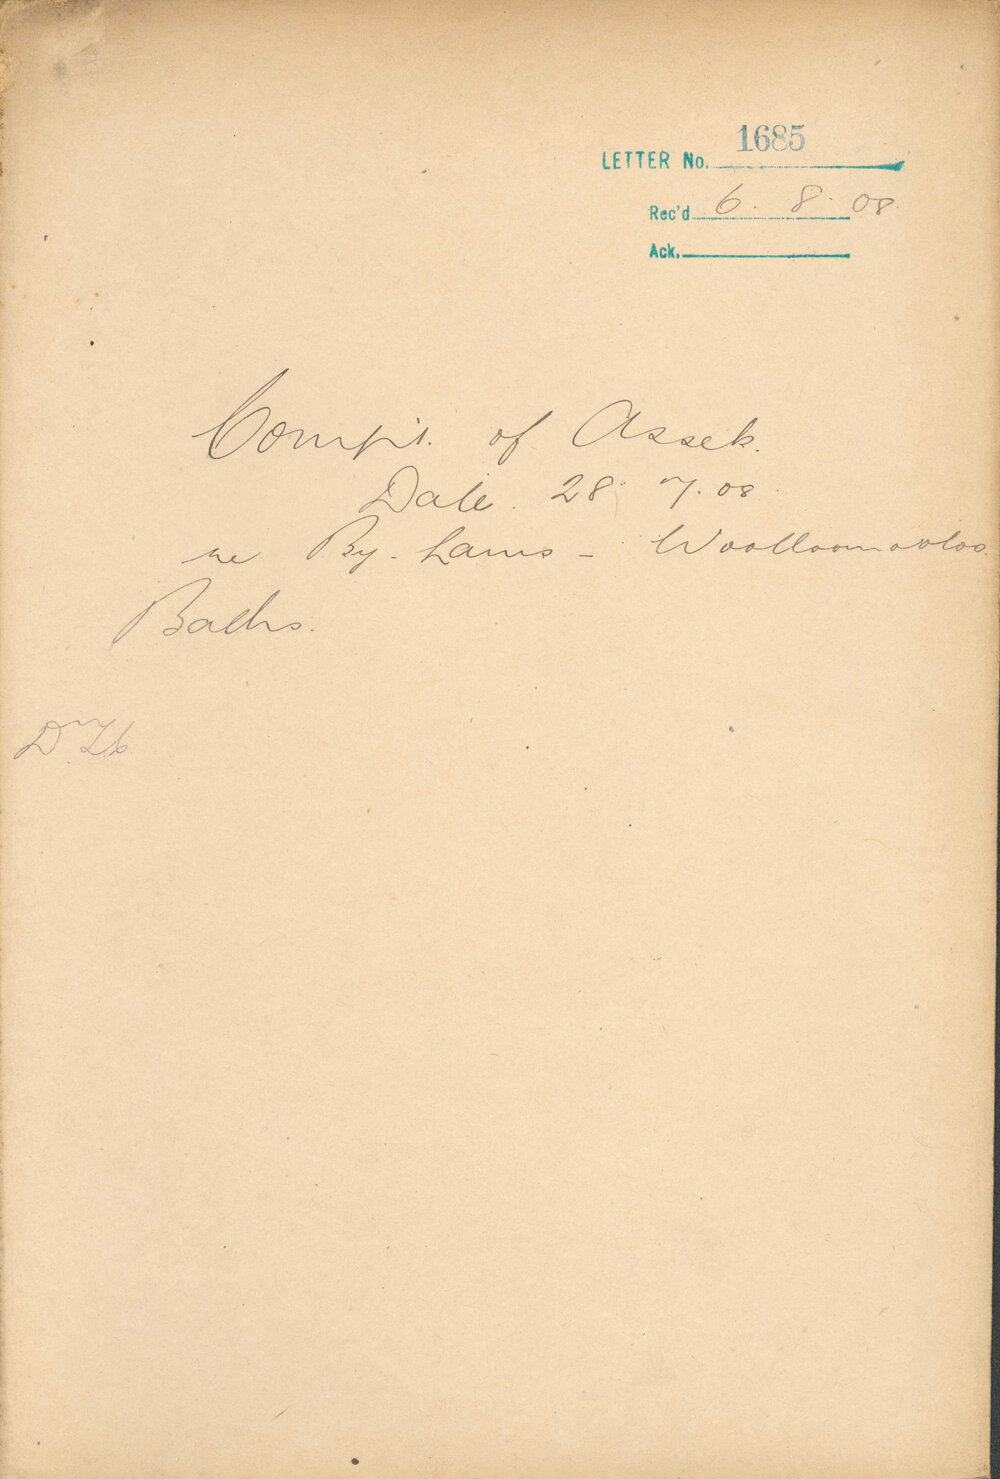 LETTER No. 1685
Rec'd 6. 8. 08.
Ack.
Compt. of Assets.
Date. 28. 7. 08.
re By-Laws - Woolloomooloo
Baths.